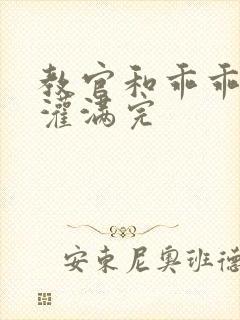 教官和乖乖
灌满完
安东尼奥班德